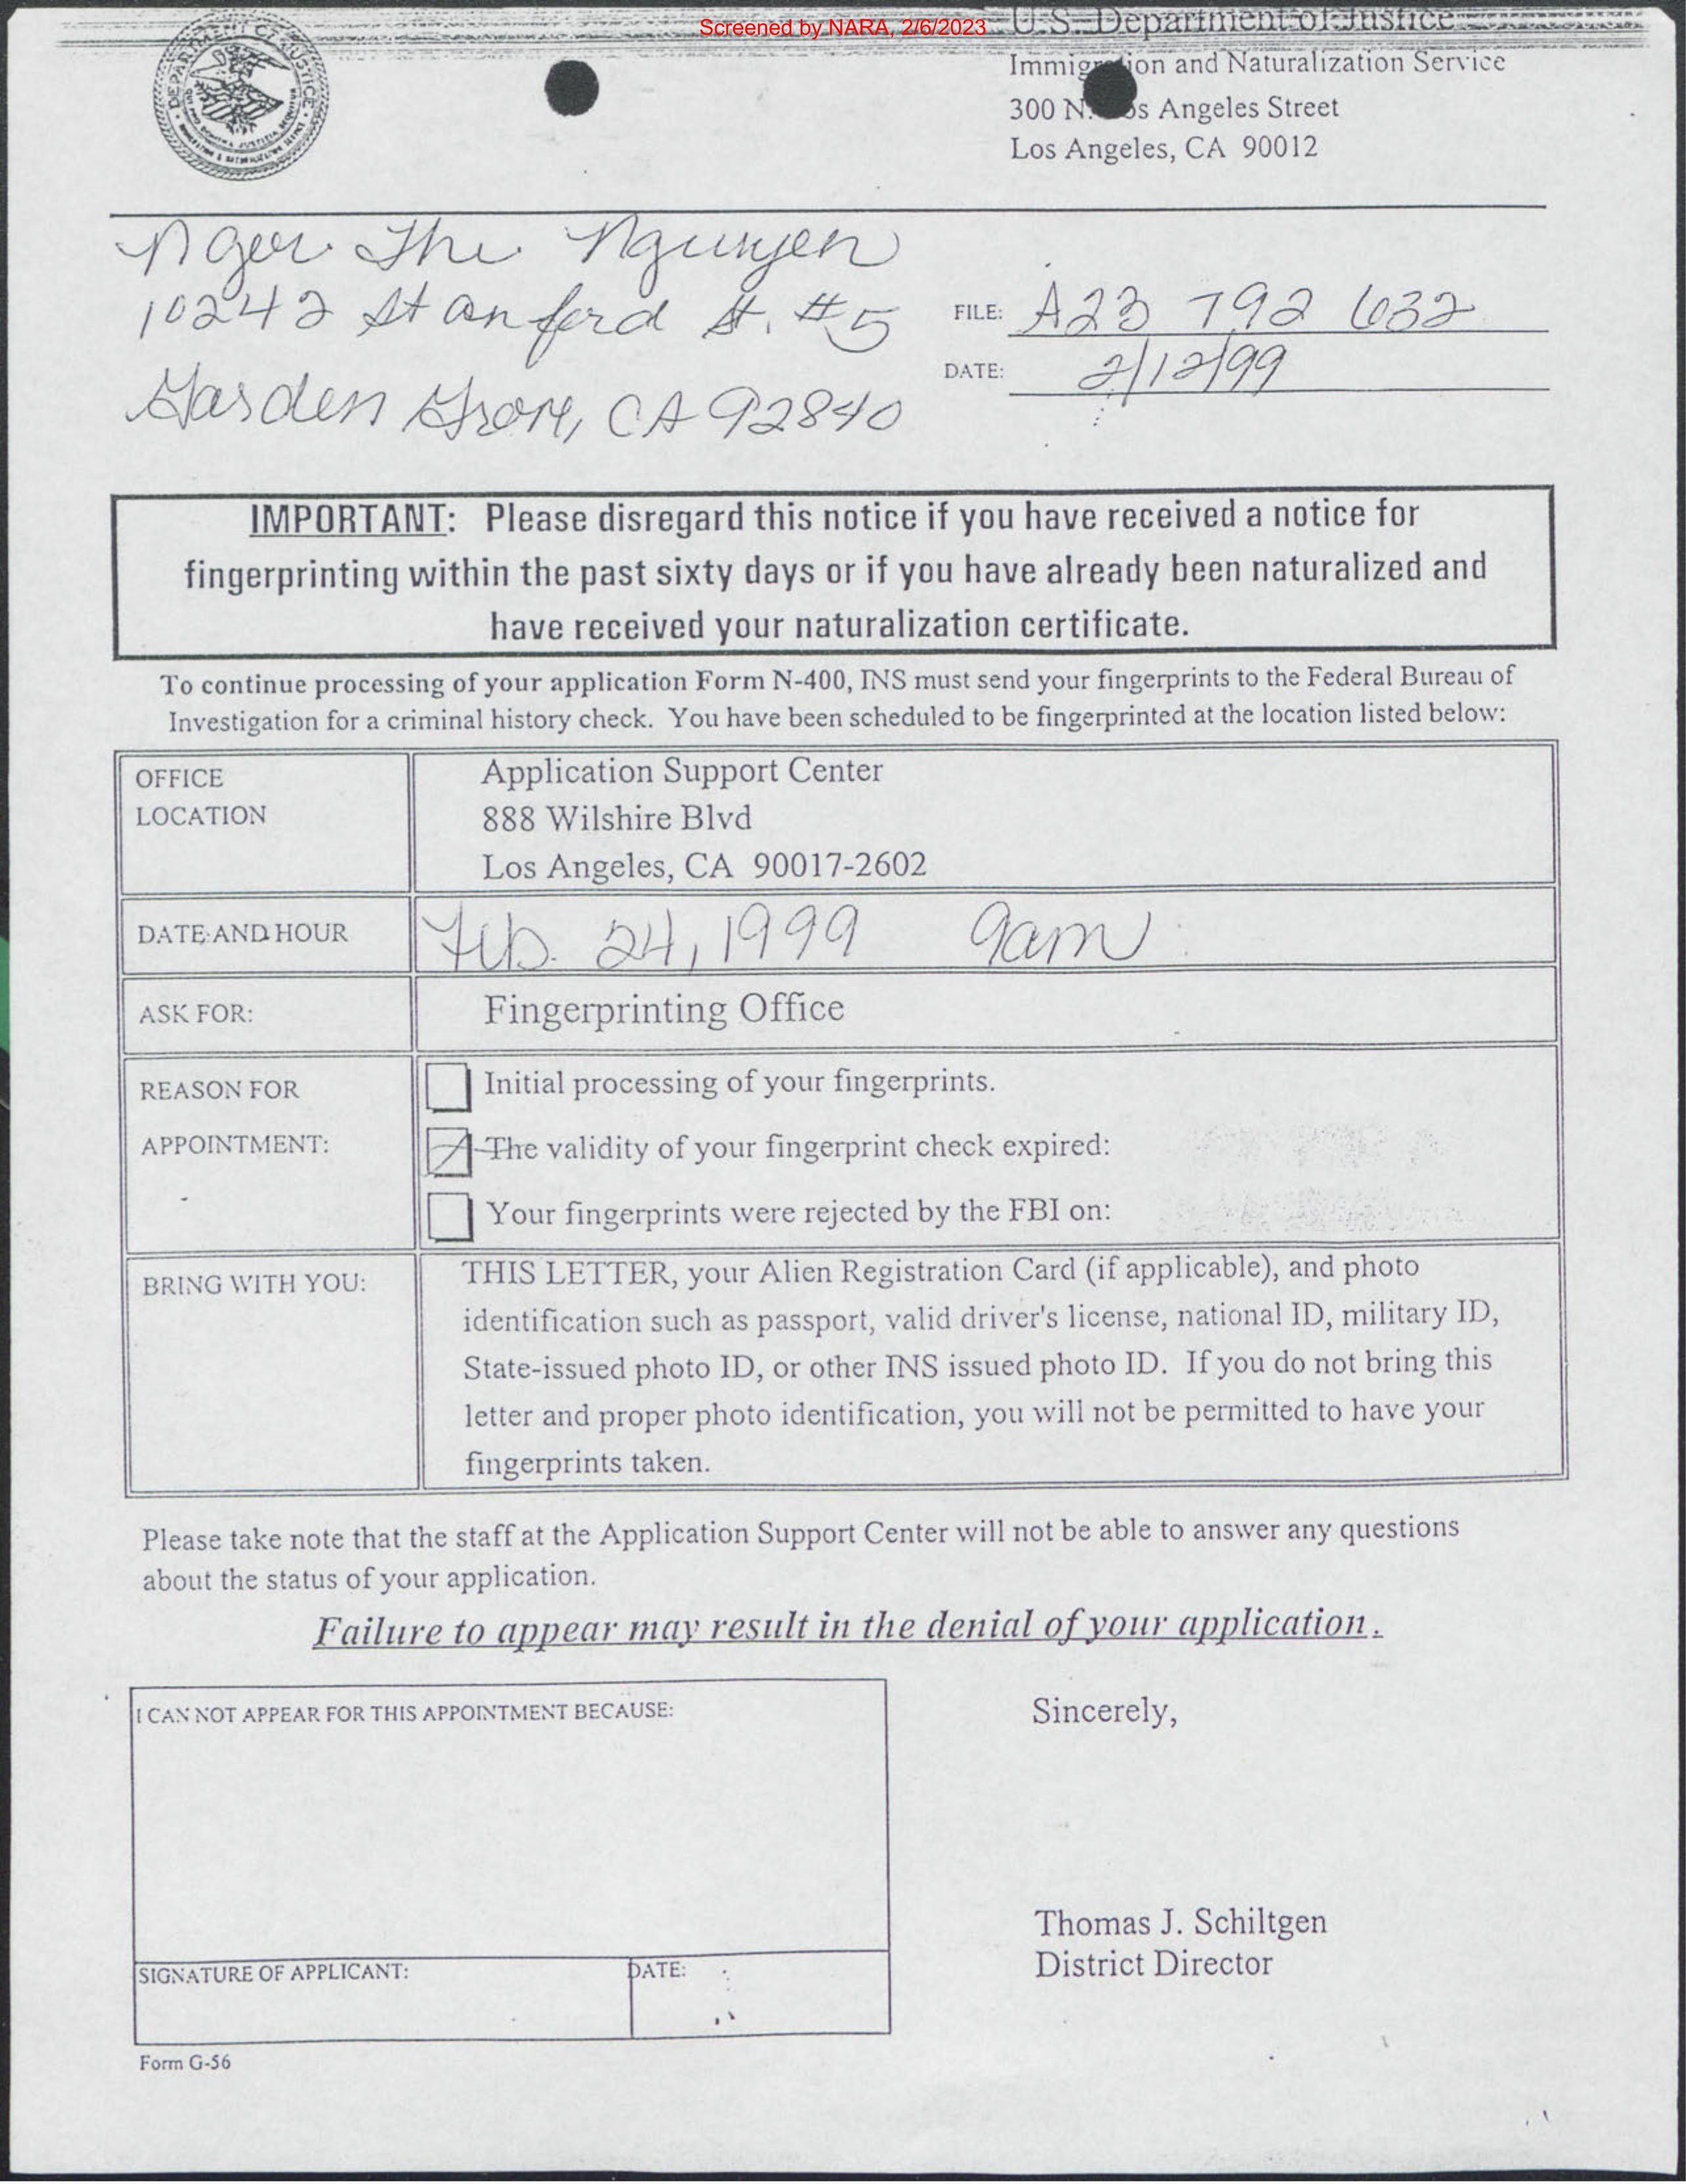 Screened by NARA, 2/6/2023
U.S. Department of Justice
Immigration and Naturalization Service
300 N. Los Angeles Street
Los Angeles, CA 90012
The Nguyen
10242 Stanford St. #5
Garden Grove, CA 92840
FILE: A23 792 632
DATE: 2/12/99
IMPORTANT: Please disregard this notice if you have received a notice for
fingerprinting within the past sixty days or if you have already been naturalized and
have received your naturalization certificate.
To continue processing of your application Form N-400, INS must send your fingerprints to the Federal Bureau of
Investigation for a criminal history check. You have been scheduled to be fingerprinted at the location listed below:
OFFICE
LOCATION
Application Support Center
888 Wilshire Blvd
Los Angeles, CA 90017-2602
DATE AND HOUR
Feb. 24, 1999 9am
ASK FOR:
Fingerprinting Office
REASON FOR
APPOINTMENT:
Initial processing of your fingerprints.
The validity of your fingerprint check expired:
Your fingerprints were rejected by the FBI on:
BRING WITH YOU:
THIS LETTER, your Alien Registration Card (if applicable), and photo
identification such as passport, valid driver's license, national ID, military ID,
State-issued photo ID, or other INS issued photo ID. If you do not bring this
letter and proper photo identification, you will not be permitted to have your
fingerprints taken.
Please take note that the staff at the Application Support Center will not be able to answer any questions
about the status of your application.
Failure to appear may result in the denial of your application.
I CAN NOT APPEAR FOR THIS APPOINTMENT BECAUSE:
SIGNATURE OF APPLICANT:
DATE:
Sincerely,
Thomas J. Schiltgen
District Director
Form G-56